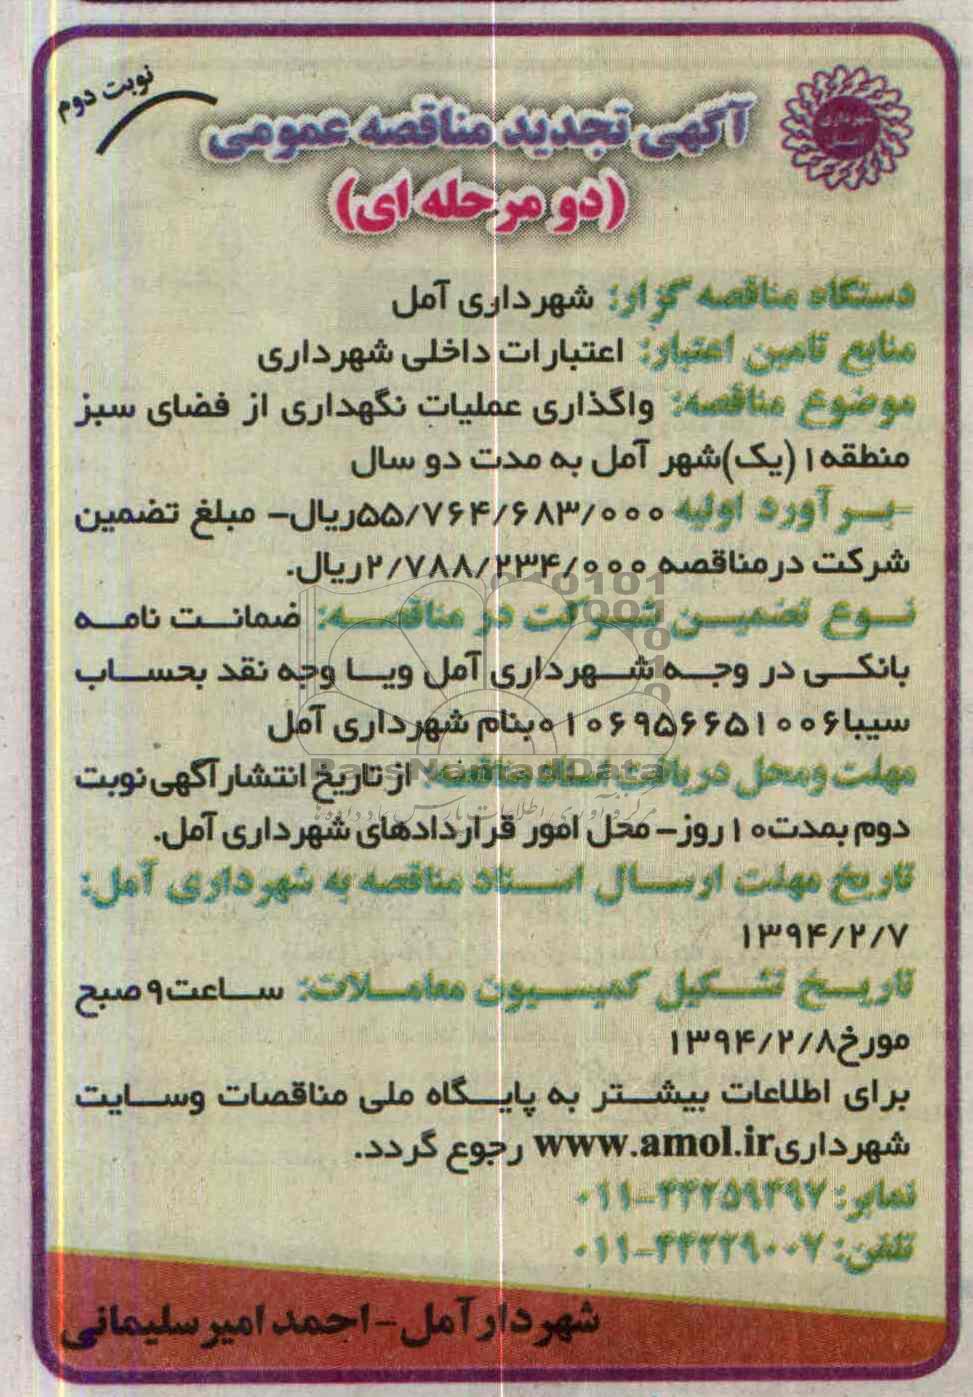 نوبت دوم
شهرداری آمل
آگهی تجدید مناقصه عمومی
(دو مرحله ای)
دستگاه مناقصه گزار: شهرداری آمل
منابع تامین اعتبار: اعتبارات داخلی شهرداری
موضوع مناقصه: واگذاری عملیات نگهداری از فضای سبز
منطقه۱ (یک)شهر آمل به مدت دو سال
-بـر آورد اولیه ۵۵/۷۶۴/۶۸۳/۰۰۰ریال- مبلغ تضمین
شرکت درمناقصه ۲/۷۸۸/۲۳۴/۰۰۰ریال.
نـوع تضمیـن شـرکت در مناقصـه: ضمانـت نامـه
بانکـی در وجـه شـهرداری آمل ویـا وجه نقد بحسـاب
سیبا۰۱۰۶۹۵۶۶۵۱۰۰۶بنام شهرداری آمل
مهلت ومحل دریافت اسناد مناقصه: از تاریخ انتشار آگهی نوبت
دوم بمدت۱۰ روز- محل امور قراردادهای شهرداری آمل.
تاریخ مهلت ارسـال اسـناد مناقصه به شهرداری آمل:
۱۳۹۴/۲/۷
تاریـخ تشـکیل کمیسـیون معامـلات: سـاعت۹صبح
مورخ۱۳۹۴/۲/۸
برای اطلاعات بیشـتر به پایـگاه ملی مناقصات وسـایت
شهرداریwww.amol.ir رجوع گردد.
نمابر: ۰۱۱-۴۴۲۵۹۴۹۷
تلفن: ۰۱۱-۴۴۲۲۹۰۰۷
شهردار آمل-احمد امیرسلیمانی
ParsNamadData